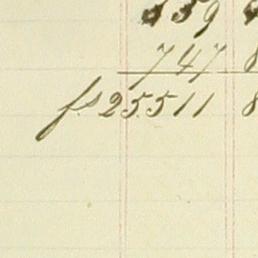 59
747 8
fs 25511 8